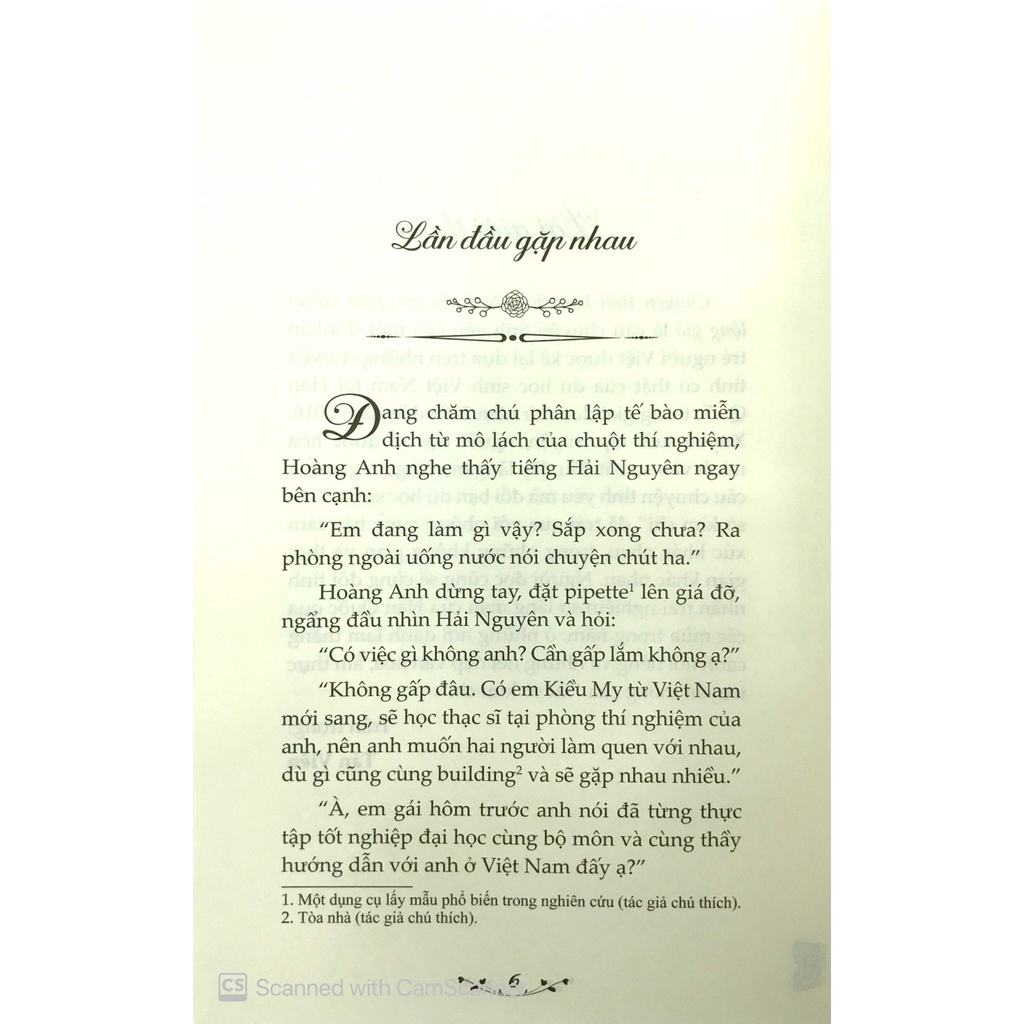 Lần đầu gặp nhau
Đang chăm chú phân lập tế bào miễn
dịch từ mô lách của chuột thí nghiệm,
Hoàng Anh nghe thấy tiếng Hải Nguyên ngay
bên cạnh:
“Em đang làm gì vậy? Sắp xong chưa? Ra
phòng ngoài uống nước nói chuyện chút ha.”
Hoàng Anh dừng tay, đặt pipette¹ lên giá đỡ,
ngẩng đầu nhìn Hải Nguyên và hỏi:
“Có việc gì không anh? Cần gấp lắm không ạ?”
“Không gấp đâu. Có em Kiều My từ Việt Nam
mới sang, sẽ học thạc sĩ tại phòng thí nghiệm của
anh, nên anh muốn hai người làm quen với nhau,
dù gì cũng cùng building² và sẽ gặp nhau nhiều.”
“À, em gái hôm trước anh nói đã từng thực
tập tốt nghiệp đại học cùng bộ môn và cùng thầy
hướng dẫn với anh ở Việt Nam đấy ạ?”
1. Một dụng cụ lấy mẫu phổ biến trong nghiên cứu (tác giả chú thích).
2. Tòa nhà (tác giả chú thích).
6
CS Scanned with CamScanner